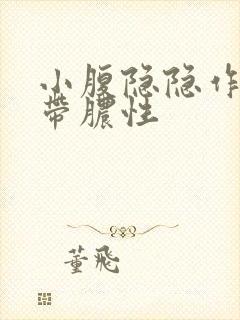 小腹隐隐作
带脓性
董飛